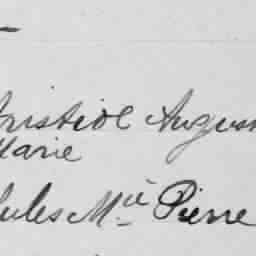 Aristide Augus
Marie
Jules Mie Pierre